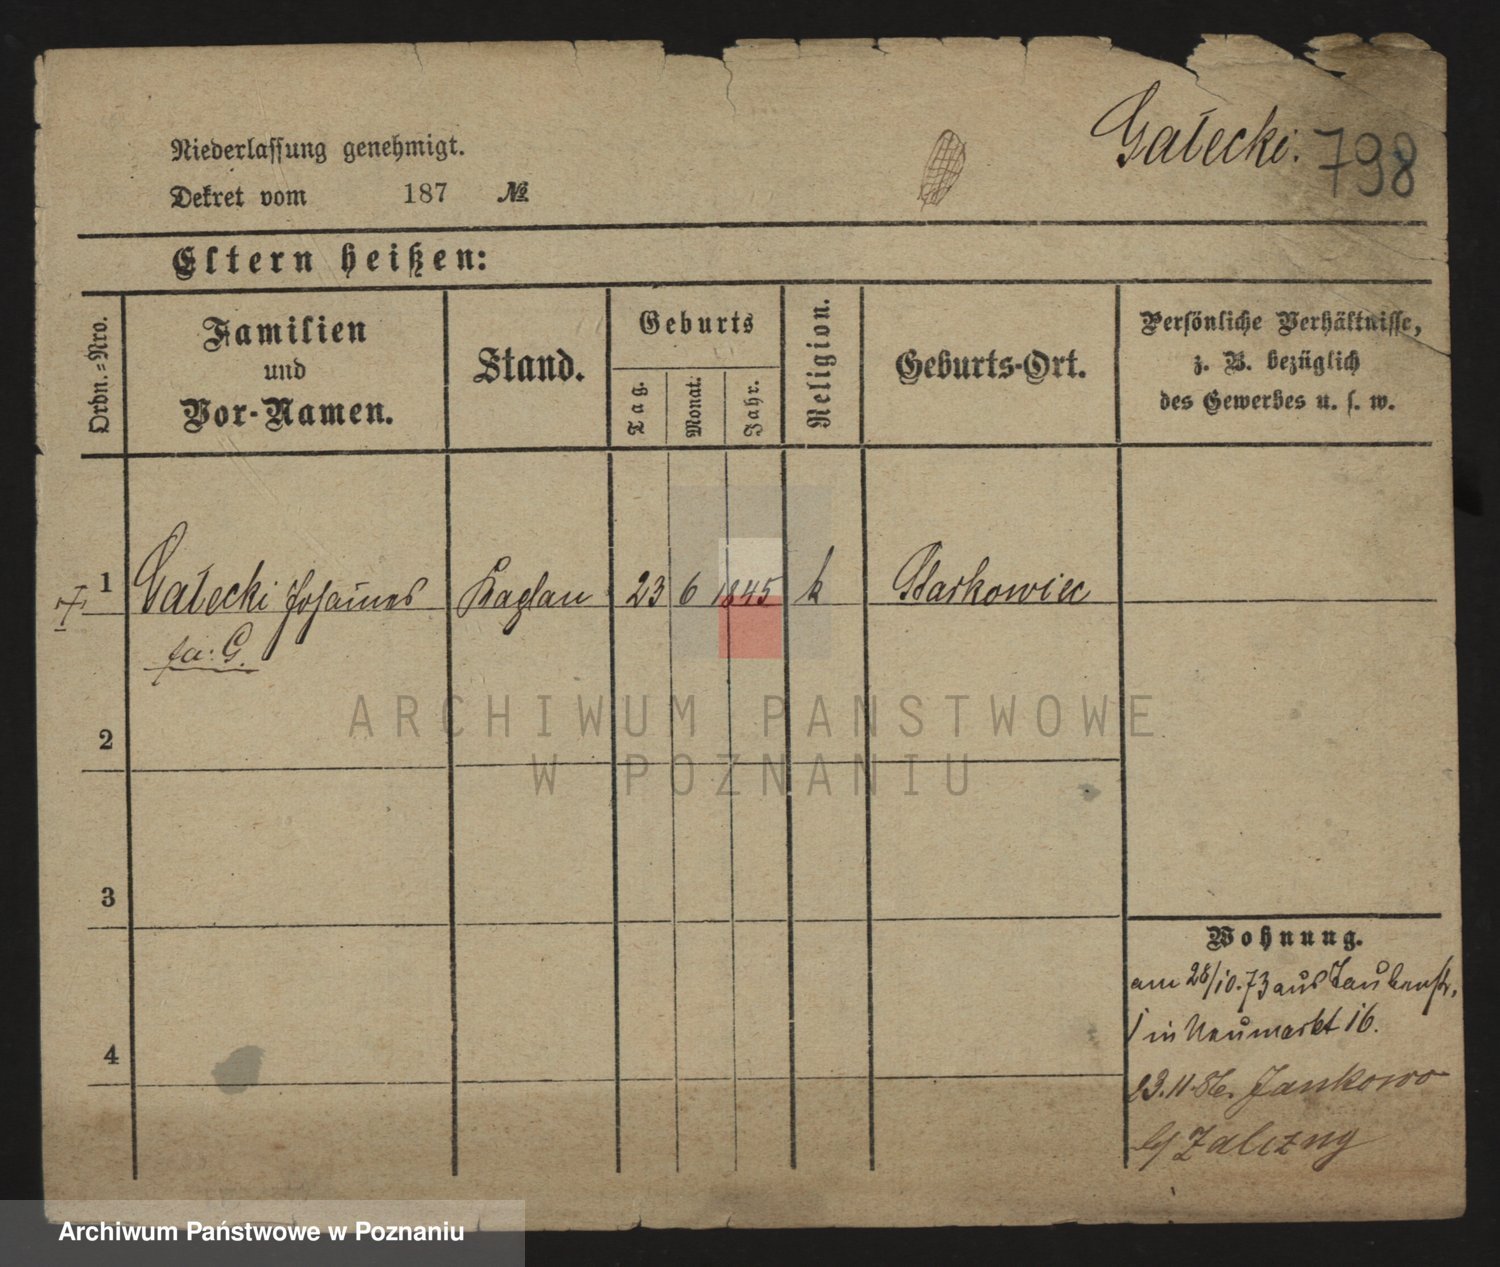 Gałecki. 798
Niederlassung genehmigt.
Dekret vom 187 №
Eltern heißen:
Ordn.=Nro.
Familien
und
Vor-Namen.
Stand.
Geburts
Tag.
Monat.
Jahr.
Religion.
Geburts-Ort.
Persönliche Verhältnisse,
z. B. bezüglich
des Gewerbes u. s. w.
1 Gałecki Johannes Kaplan 23 6 1845 k Starkowiec
fa: G.
2
3
4
Wohnung.
am 28/10.73 aus Taubenstr,
1 in Neumarkt 16.
23.11.86. Jankowo
b/ Zalezny
ARCHIWUM PAŃSTWOWE
W POZNANIU
Archiwum Państwowe w Poznaniu